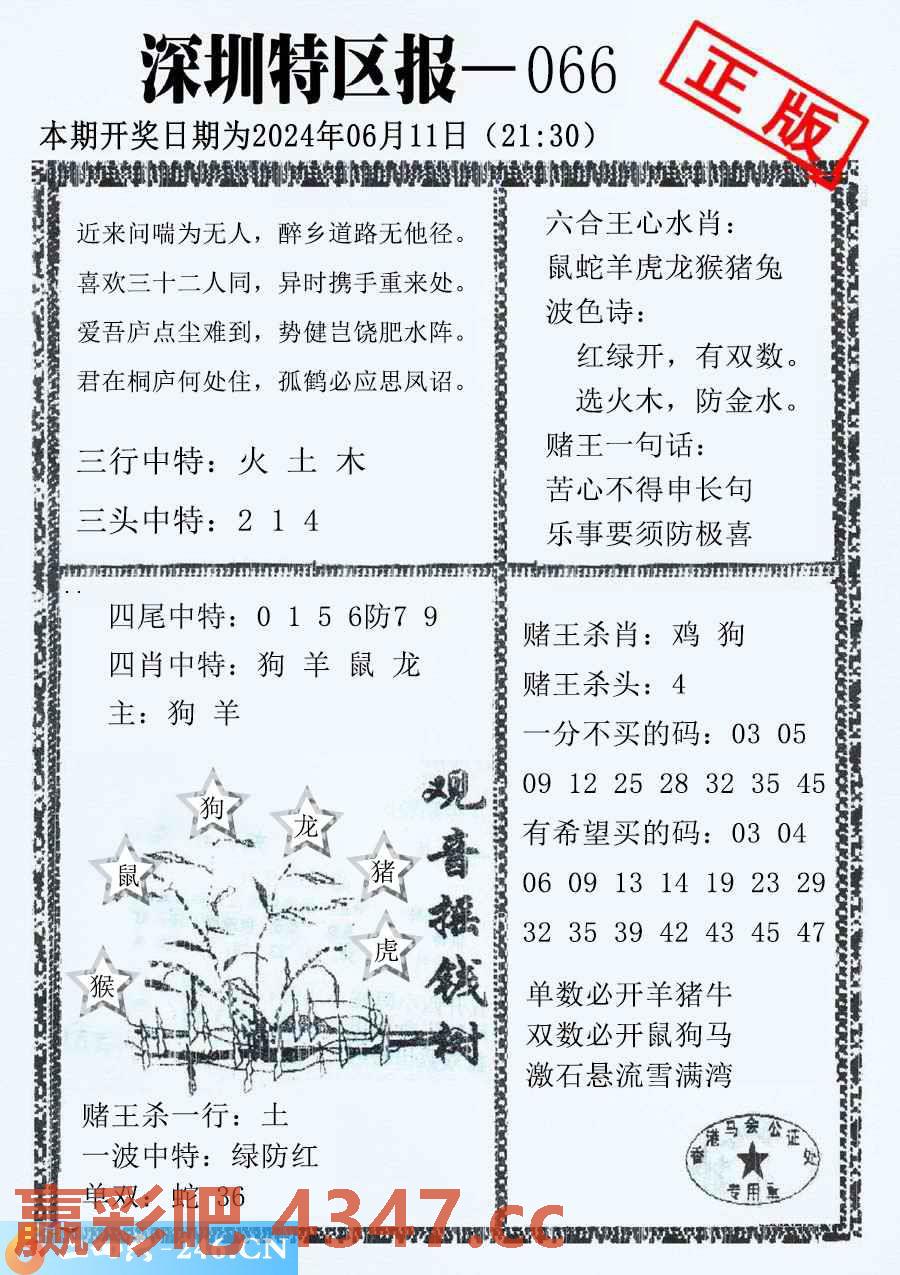 深圳特区报—066
正版
本期开奖日期为2024年06月11日（21:30）
近来问喘为无人，醉乡道路无他径。
喜欢三十二人同，异时携手重来处。
爱吾庐点尘难到，势健岂饶肥水阵。
君在桐庐何处住，孤鹤必应思凤诏。
三行中特：火 土 木
三头中特：2 1 4
六合王心水肖：
鼠蛇羊虎龙猴猪兔
波色诗：
红绿开，有双数。
选火木，防金水。
赌王一句话：
苦心不得申长句
乐事要须防极喜
四尾中特：0 1 5 6防7 9
四肖中特：狗 羊 鼠 龙
主：狗 羊
狗
龙
鼠
猪
虎
猴
观音摇钱树
赌王杀一行：土
一波中特：绿防红
单双：蛇 36
赌王杀肖：鸡 狗
赌王杀头：4
一分不买的码：03 05
09 12 25 28 32 35 45
有希望买的码：03 04
06 09 13 14 19 23 29
32 35 39 42 43 45 47
单数必开羊猪牛
双数必开鼠狗马
激石悬流雪满湾
香港马会公证处
专用章
赢彩吧 4347.cc
-246.CN